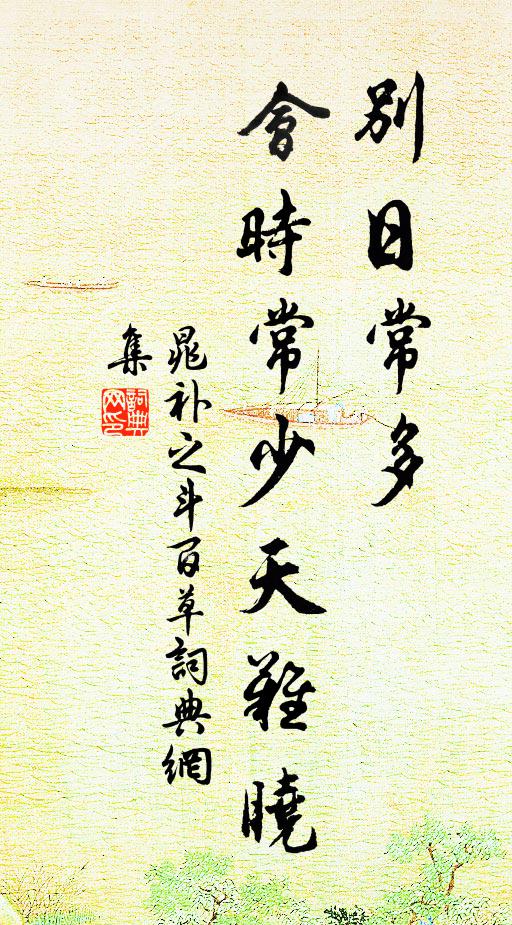 別日常多
會時常少天難曉
晁补之斗百草詞典網
集
詞典
网印